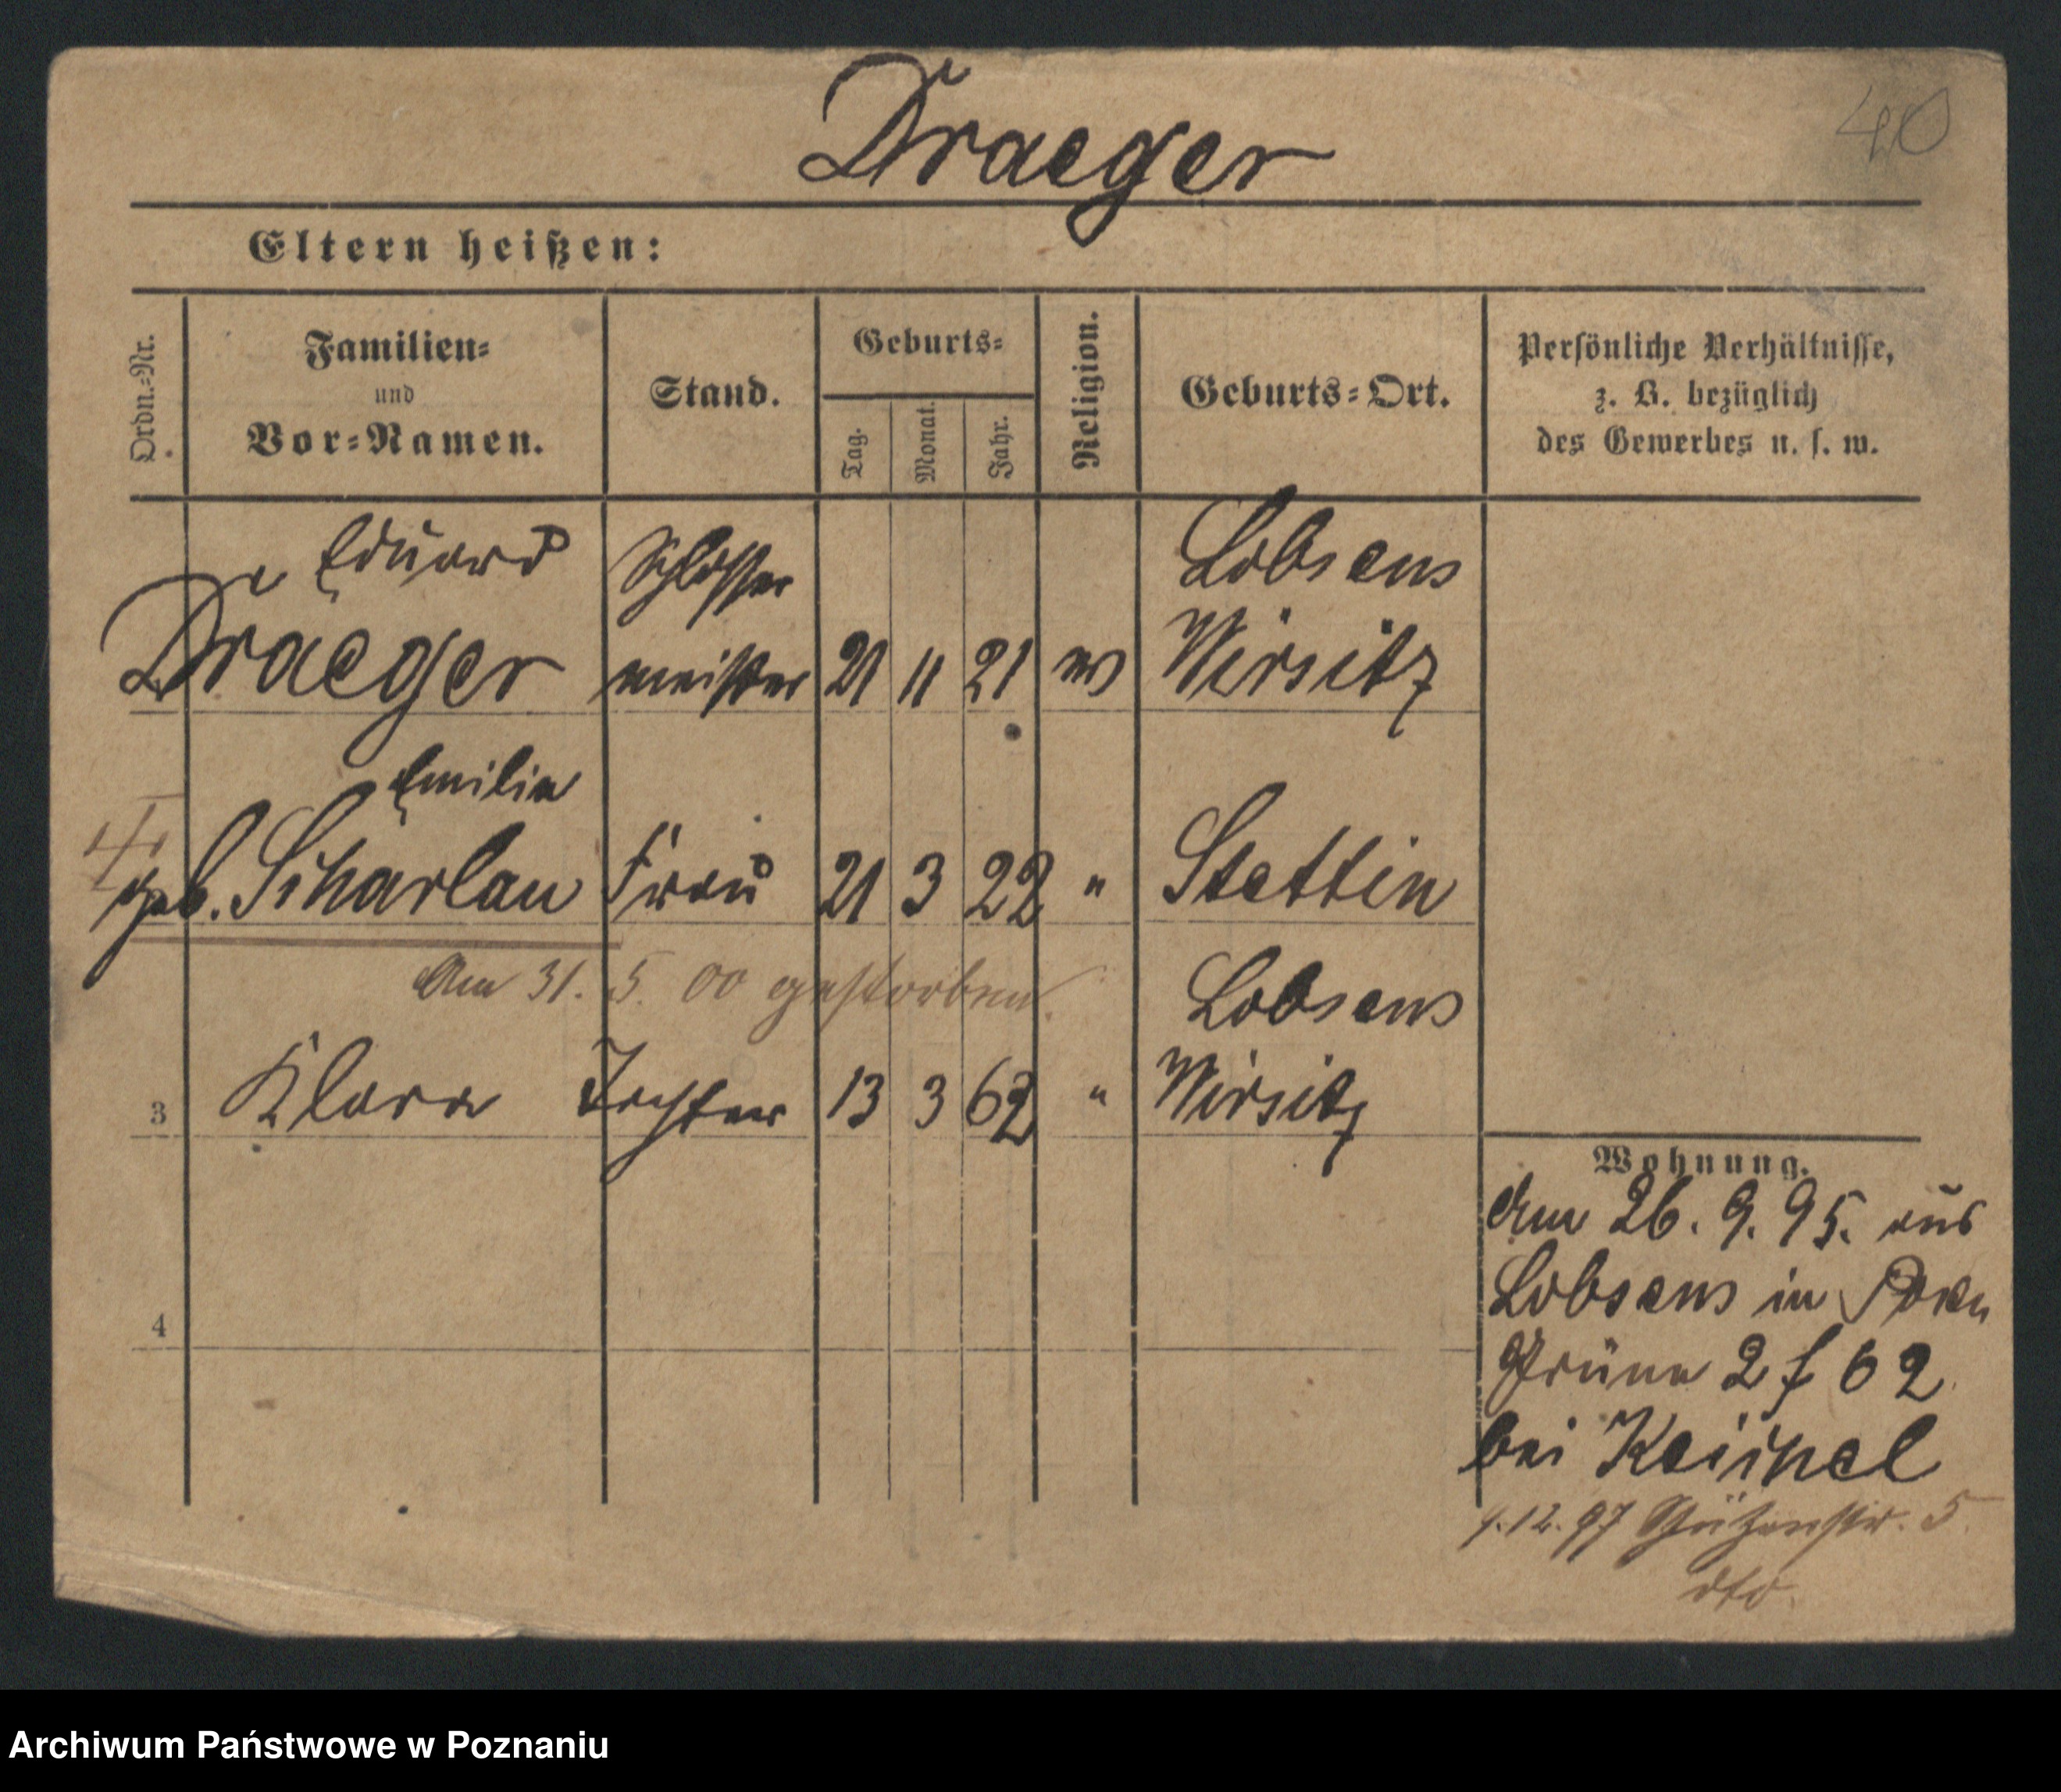 Draeger
40
Eltern heißen:
Ordn.-Nr.
Familien-
und
Vor-Namen.
Stand.
Geburts-
Tag.
Monat.
Jahr.
Religion.
Geburts-Ort.
Persönliche Verhältnisse,
z. B. bezüglich
des Gewerbes u. s. w.
Eduard
Draeger
Schlosser
meister
21 11 21
Lobsens
Wirsitz
Emilie
geb. Scharlau Frau 21 3 22 " Stettin
Am 31. 5. 00 gestorben.
Lobsens
3 Klara Tochter 13 3 62 " Wirsitz
4
Wohnung.
Am 26. 9. 95. aus
Lobsens in Posen
Grüne 2 f 62
bei
12. 97 Schützenstr. 5.
dto.
Archiwum Państwowe w Poznaniu